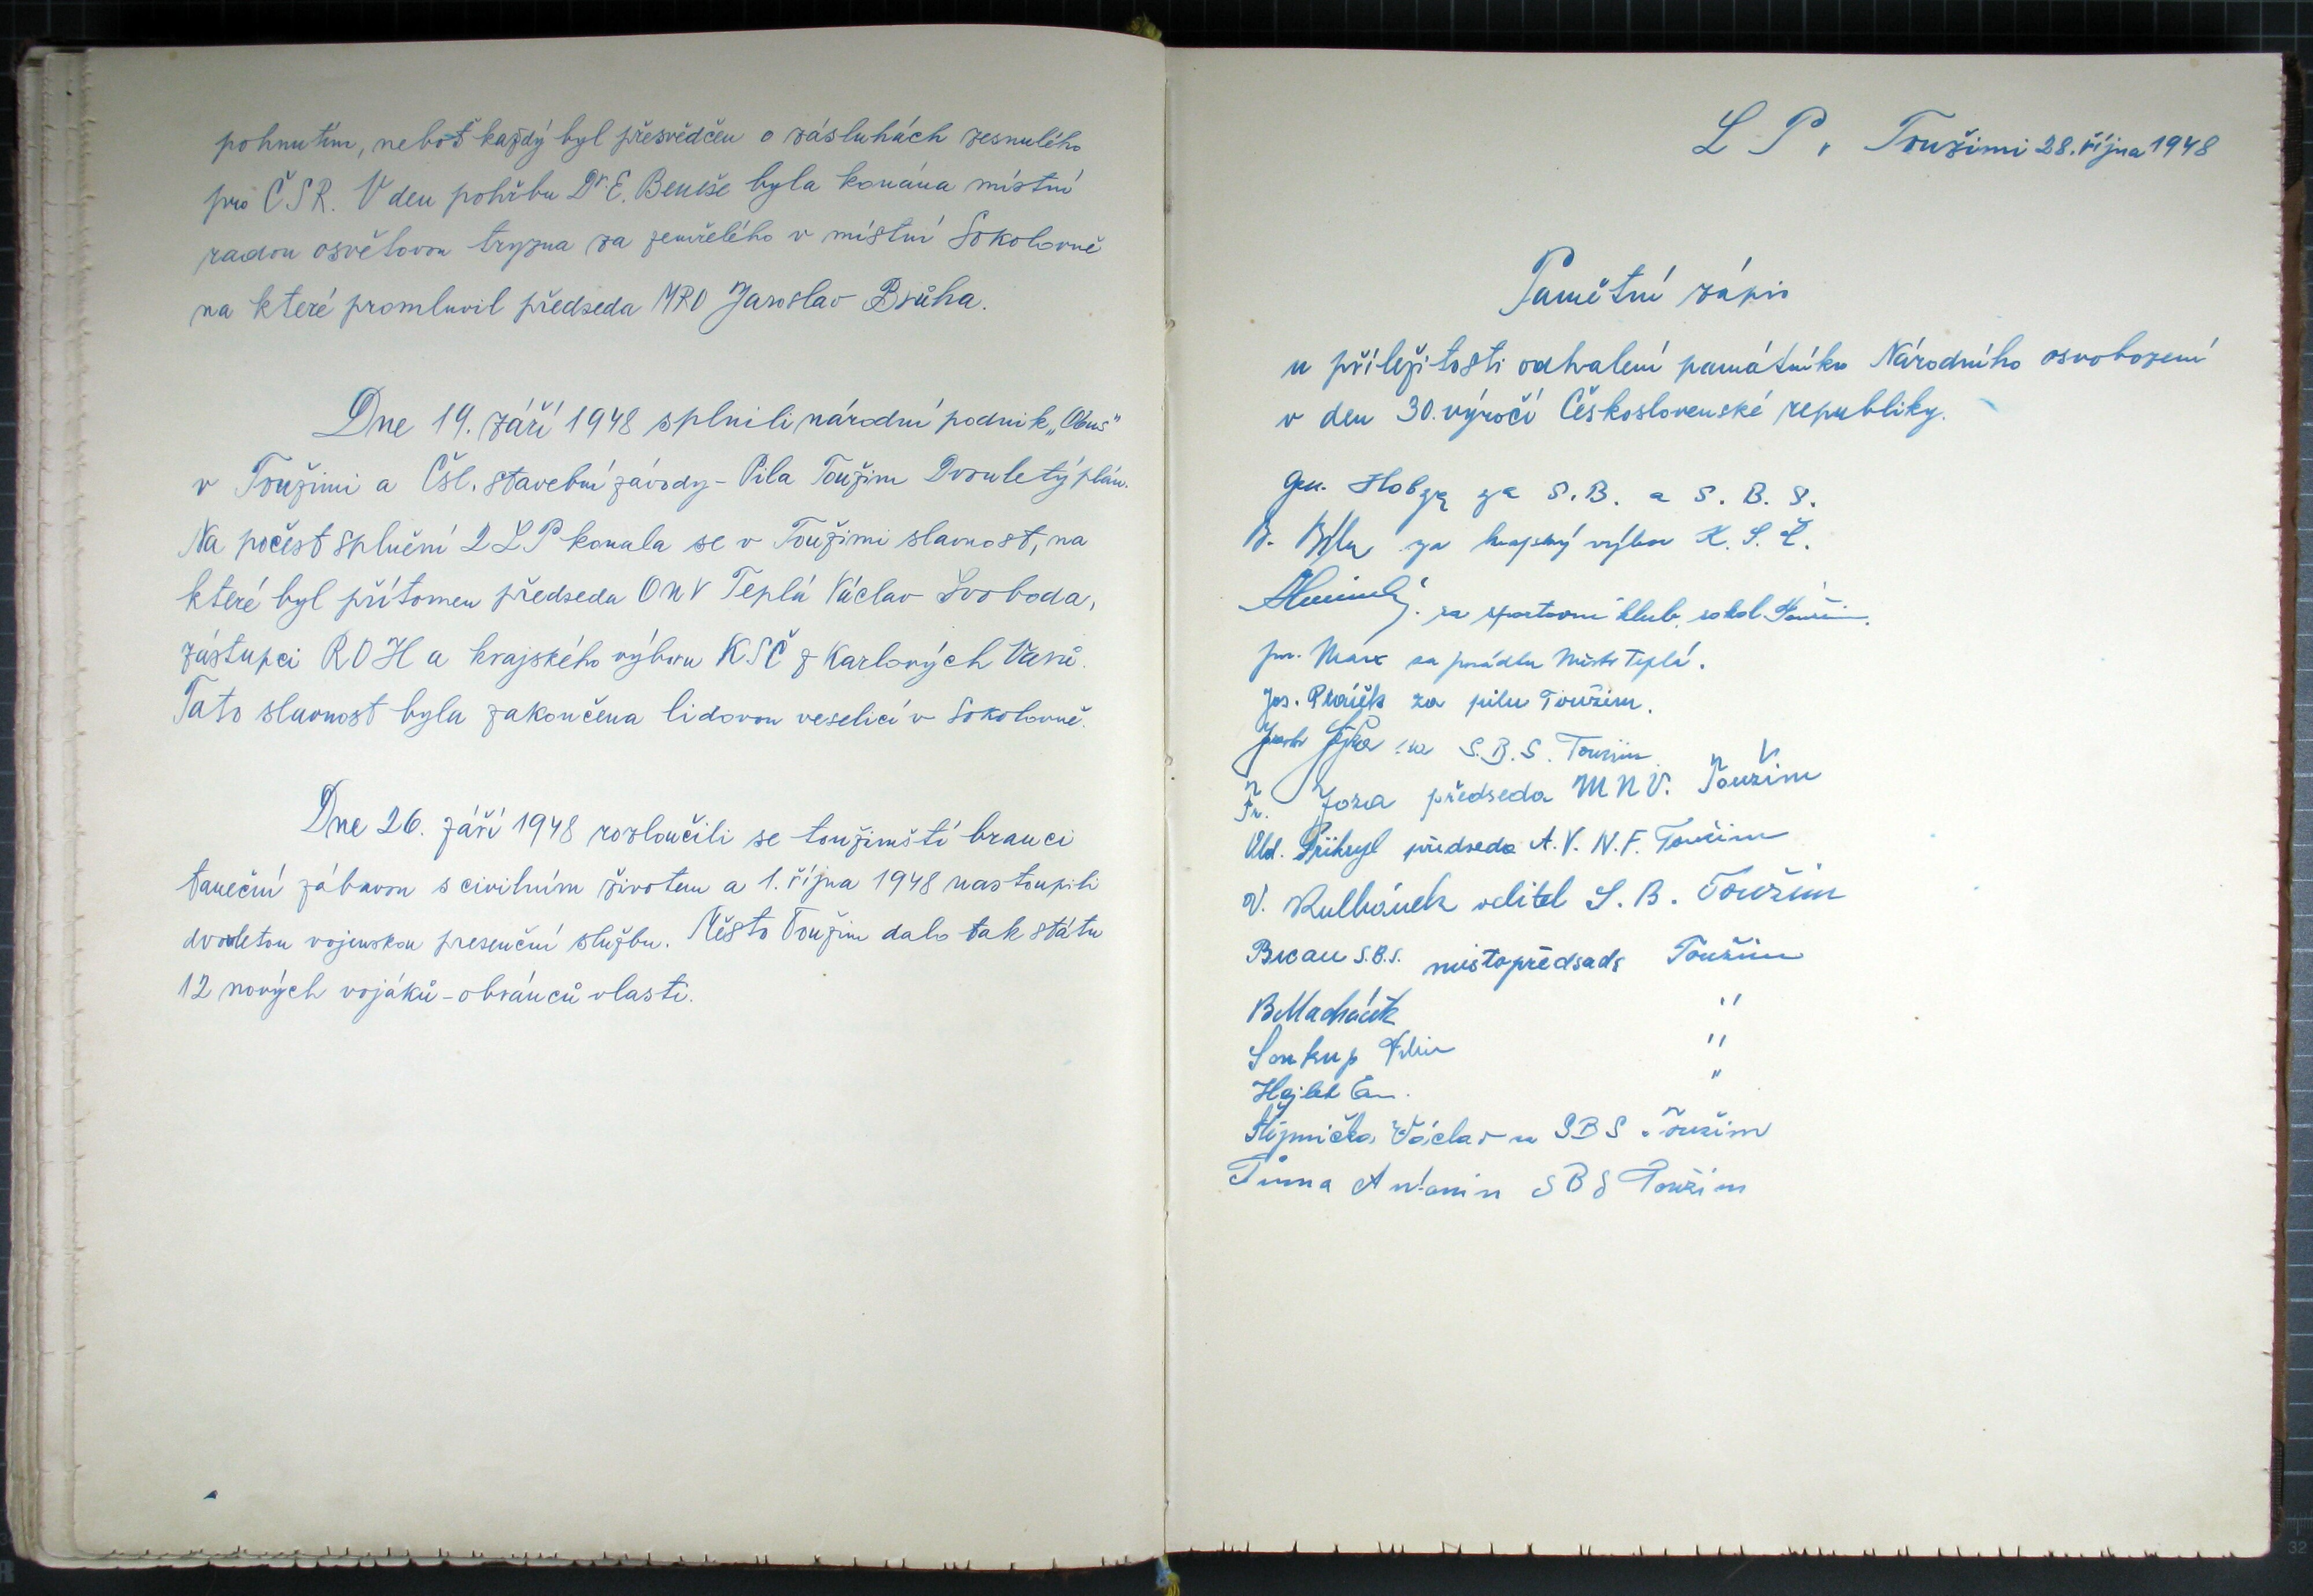 pohnutím, neboť každý byl přesvědčen o zásluhách zesnulého
pro ČSR. V den pohřbu Dr E. Beneše byla konána místní
radou osvětovou tryzna za zemřelého v místní Sokolovně
na které promluvil předseda MRO Jaroslav Bsůha.
Dne 19. září 1948 splnili národní podnik „Obus"
v Toužimi a Čsl. stavební závody - Pila Toužim Dvouletý plán.
Na počest splnění 2LP konala se v Toužimi slavnost, na
které byl přítomen předseda ONV Teplá Václav Svoboda,
zástupci ROH a krajského výboru KSČ z Karlových Varů.
Tato slavnost byla zakončena lidovou veselicí v Sokolovně.
Dne 26. září 1948 rozloučili se toužimští branci
taneční zábavou s civilním životem a 1. října 1948 nastoupili
dvouletou vojenskou presenční službu. Město Toužim dalo tak státu
12 nových vojáků - obránců vlasti.
L P. Toužimi 28. října 1948
Pamětní zápis
u příležitosti odhalení památníku Národního osvobození
v den 30. výročí Československé republiky.
za S.B. a S.B.S.
B. za krajský výbor K.S.Č.
za sportovní klub sokol Toužim.
Marx za Teplá.
Jos. Ptáček za pilu Toužim.
za S.B.S. Toužim
Fr. Joza předseda MNV. Toužim
Vlad. Přikryl předseda A.V.N.F. Toužim
V. Kulhánek velitel S.B. Toužim
S.B.S. místopředsada Toužim
B Macháček "
Soukup "
Hájek "
Václav za SBS Toužim
Tůma Antonín SBS Toužim